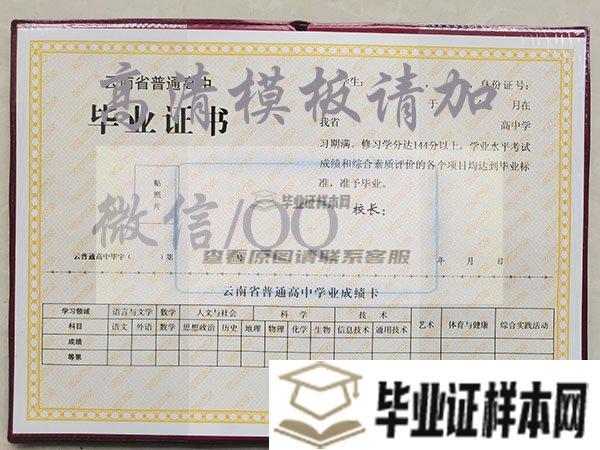 云南省普通高中
毕业证书
学生: , 身份证号:
于 月在
我省 高中学
习期满。修习学分达144分以上,学业水平考试
成绩和综合素质评价的各个项目均达到毕业标
准,准予毕业。
校长:
贴
照
片
云普通高中毕字( )第 号
年 月 日
高清模板请加
微信/QQ
毕业证样本网
查看原图请联系客服
云南省普通高中学业成绩卡
学习领域 语言与文学 数学 人文与社会 科 学 技 术 艺术 体育与健康 综合实践活动
科目 语文 外语 数学 思想政治 历史 地理 物理 化学 生物 信息技术 通用技术
成绩
等第
毕业证样本网